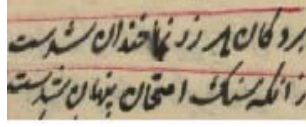 بر دکان هر زرنما خندان شدست
زانکه سنک امتحان پنهان شدست